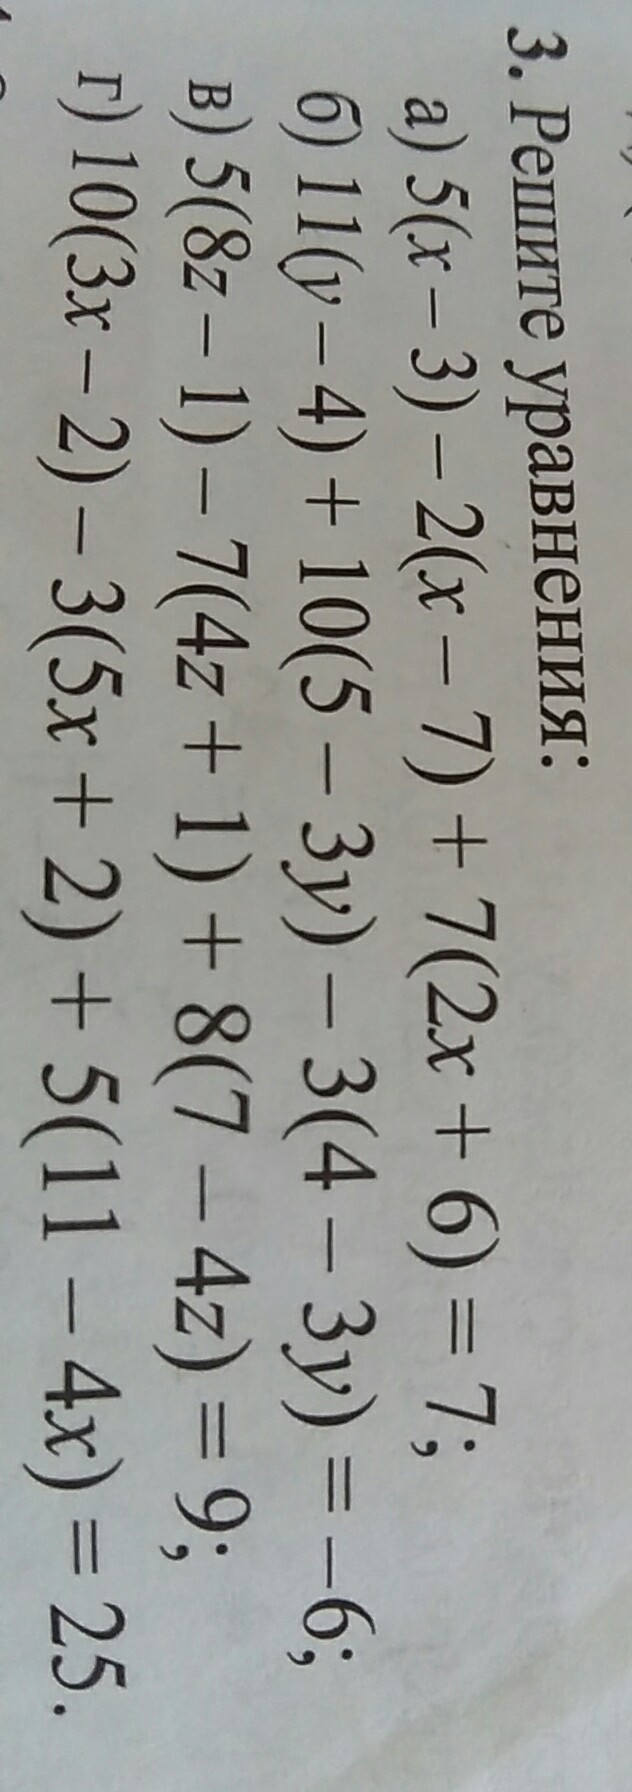 3. Решите уравнения:
а) 5(x – 3) – 2(x – 7) + 7(2x + 6) = 7;
б) 11(y – 4) + 10(5 – 3y) – 3(4 – 3y) = –6;
в) 5(8z – 1) – 7(4z + 1) + 8(7 – 4z) = 9;
г) 10(3x – 2) – 3(5x + 2) + 5(11 – 4x) = 25.